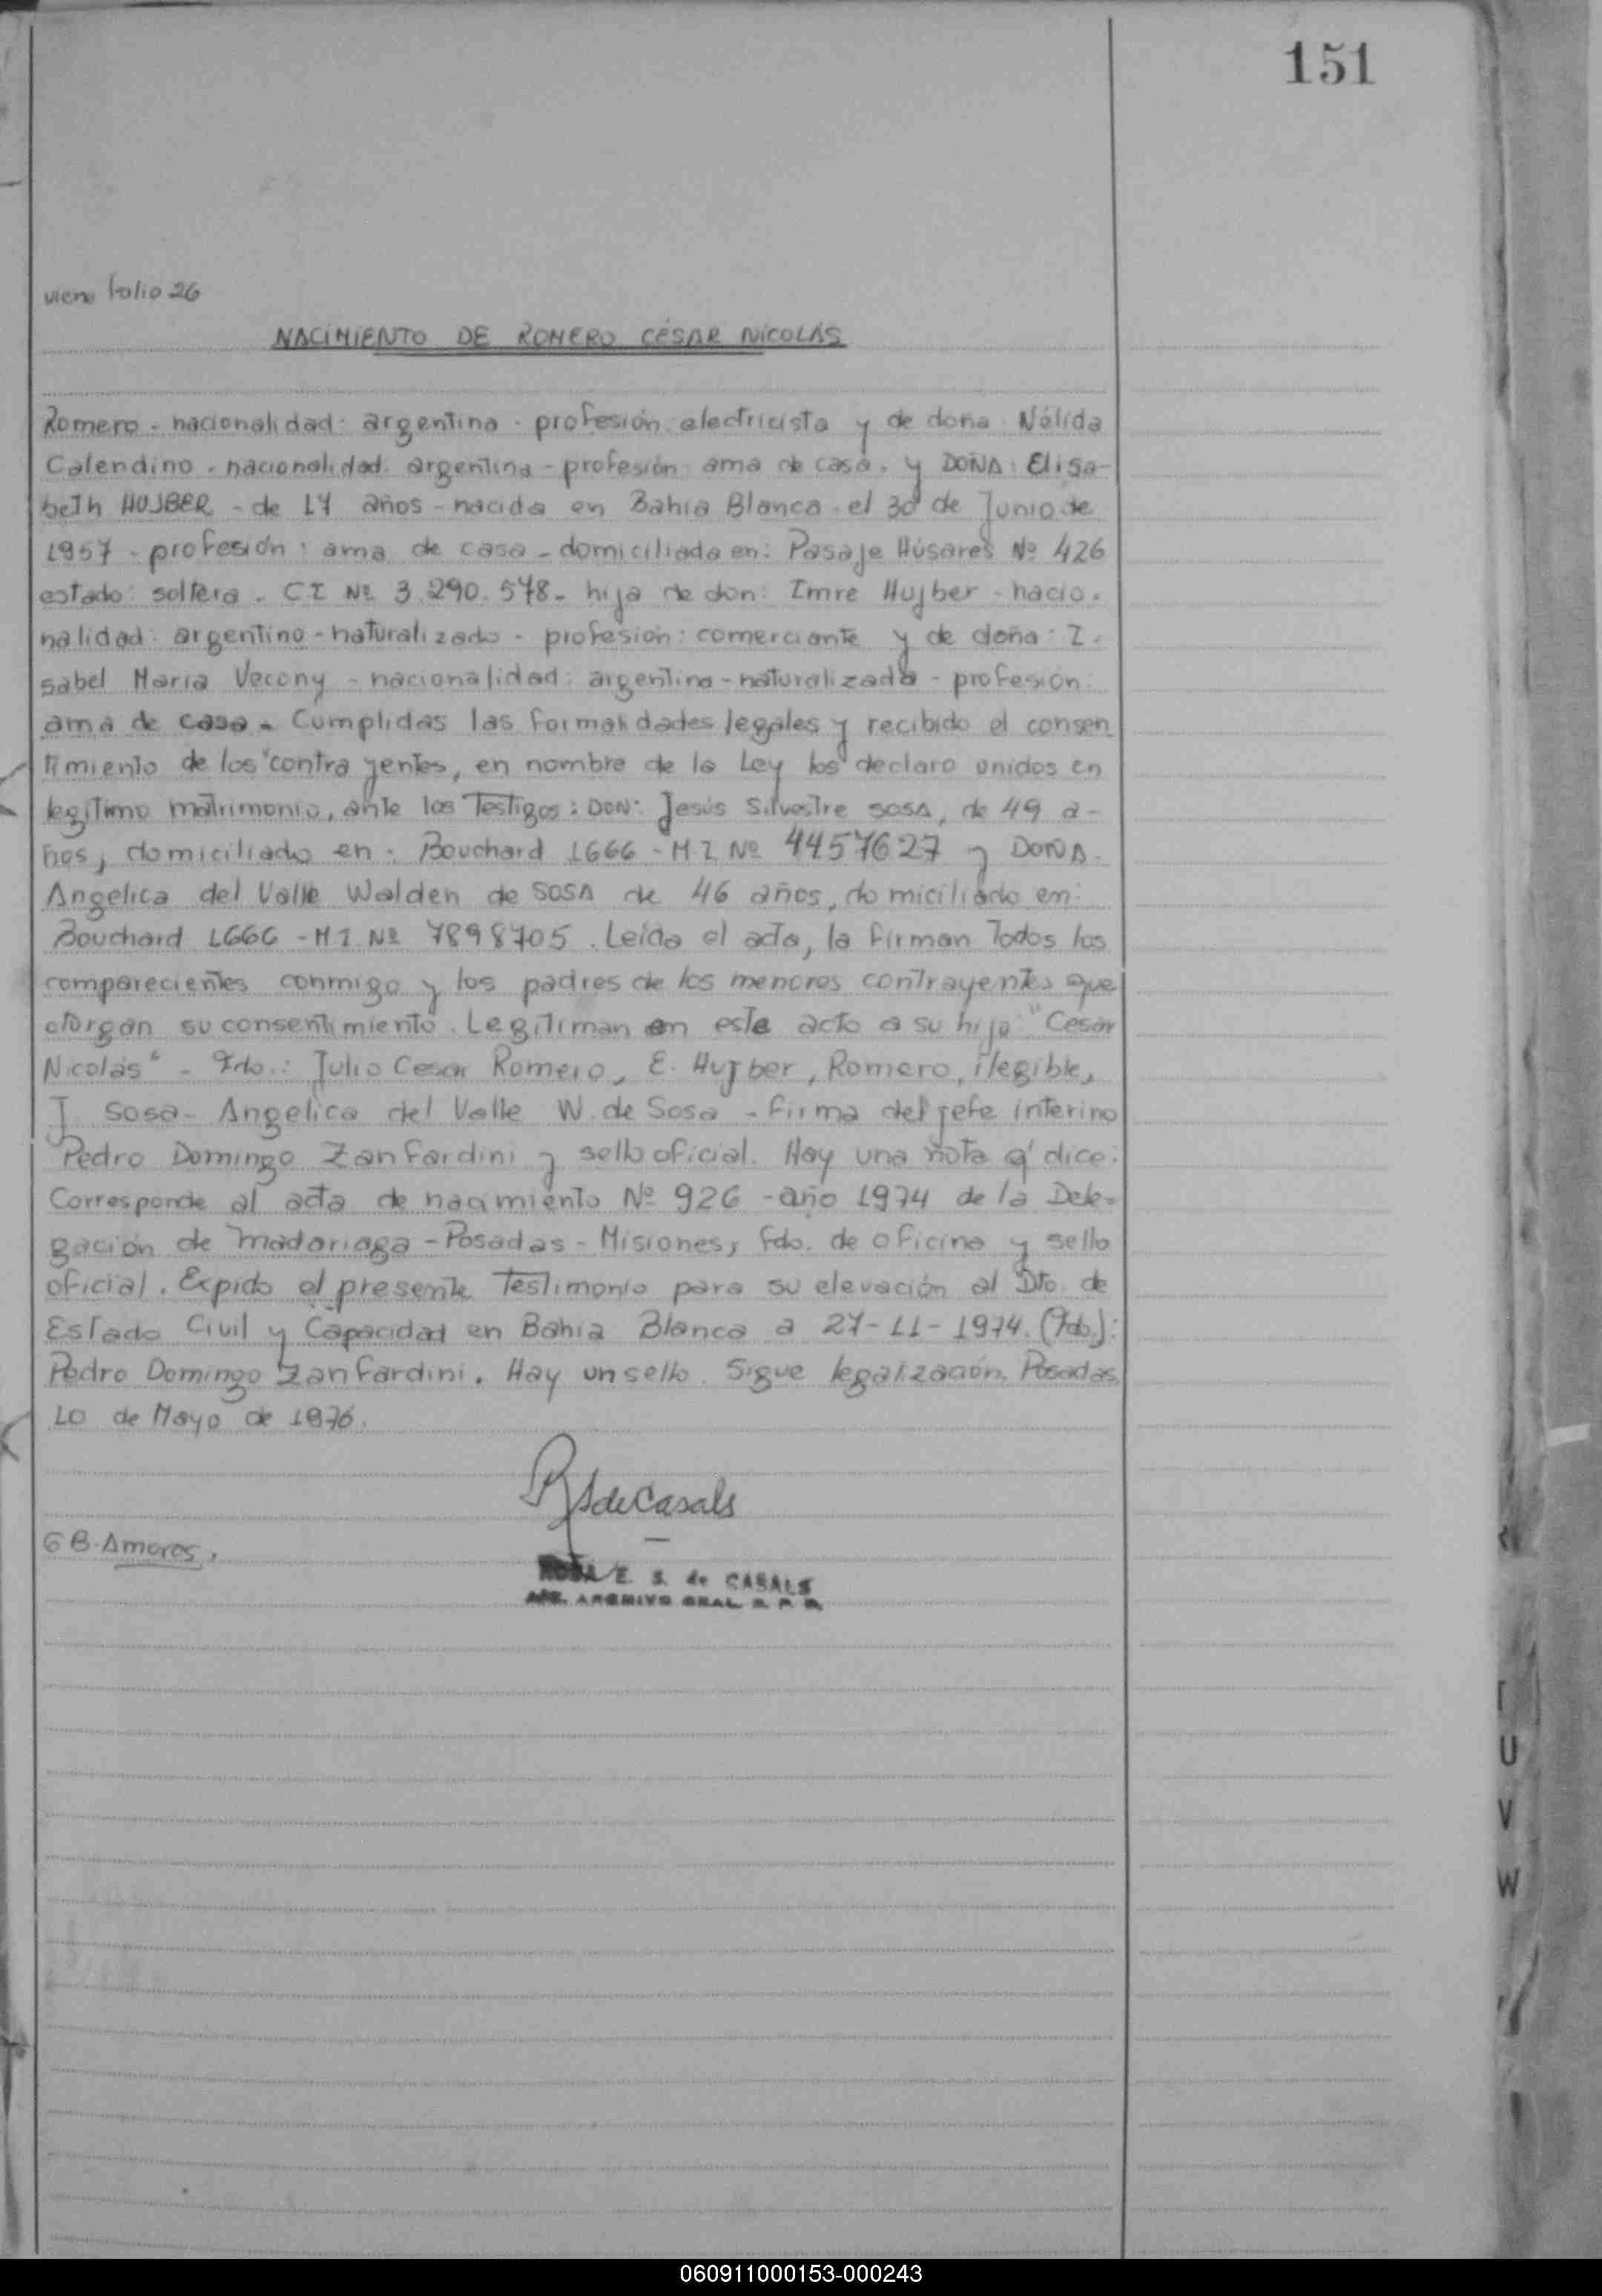 151
viene folio 26
NACIMIENTO DE ROMERO CÉSAR NICOLÁS
Romero - nacionalidad: argentina - profesión: electricista y de doña Nélida
Calendino - nacionalidad: argentina - profesión: ama de casa. y DOÑA: Elisa-
beth HUJBER - de 17 años - nacida en Bahía Blanca el 30 de Junio de
1957 - profesión: ama de casa - domiciliada en: Pasaje Húsares Nº 426
estado: soltera. CI Nº 3.290.578 - hija de don: Imre Hujber - nacio-
nalidad: argentino - naturalizado - profesión: comerciante y de doña: I-
sabel María Vecony - nacionalidad: argentina - naturalizada - profesión:
ama de casa - Cumplidas las formalidades legales y recibido el consen
timiento de los contrayentes, en nombre de la Ley los declaro unidos en
legítimo matrimonio, ante los Testigos: DON: Jesús Silvestre SOSA, de 49 a-
ños, domiciliado en: Bouchard 1666 - M.I. Nº 4457627 y DOÑA
Angelica del Valle Walden de SOSA de 46 años, domiciliado en:
Bouchard 1666 - M.I. Nº 7898705. Leída el acta, la firman Todos los
comparecientes conmigo y los padres de los menores contrayentes que
otorgan su consentimiento. Legitiman en este acto a su hijo "Cesár
Nicolás" - Fdo.: Julio Cesar Romero, E. Hujber, Romero, ilegible,
J Sosa - Angelica del Valle W. de Sosa - firma del jefe interino
Pedro Domingo Zanfardini y sello oficial. Hay una nota q' dice:
Corresponde al acta de nacimiento Nº 926 - año 1974 de la Dele-
gación de Madariaga - Posadas - Misiones, fdo. de oficina y sello
oficial. Expido el presente Testimonio para su elevación al Dto. de
Estado Civil y Capacidad en Bahía Blanca a 27-11-1974. (Fdo.):
Pedro Domingo Zanfardini. Hay un sello. Sigue legalización. Posadas,
10 de Mayo de 1976.
de Casals
G B. Amores.
ROSA E. S. de CASALS
ARCHIVO GRAL R. P. P.
U
V
W
060911000153-000243